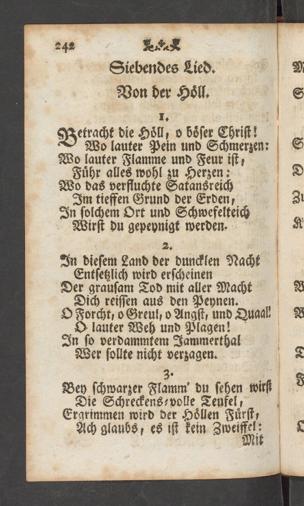 242
Siebendes Lied.
Von der Höll.
1.
Betracht die Höll, o böser Christ!
Wo lauter Pein und Schmerzen:
Wo lauter Flamme und Feur ist,
Führ alles wohl zu Herzen:
Wo das verfluchte Satansreich
Im tieffen Grund der Erden,
In solchem Ort und Schwefelteich
Wirst du gepeynigt werden.
2.
In diesem Land der duncklen Nacht
Entsetzlich wird erscheinen
Der grausam Tod mit aller Macht
Dich reissen aus den Peynen.
O Forcht, o Greul, o Angst, und Quaal!
O lauter Weh und Plagen!
In so verdammtem Jammerthal
Wer sollte nicht verzagen.
3.
Bey schwarzer Flamm' du sehen wirst
Die Schreckens-volle Teufel,
Ergrimmen wird der Höllen Fürst,
Ach glaubs, es ist kein Zweiffel:
Mit